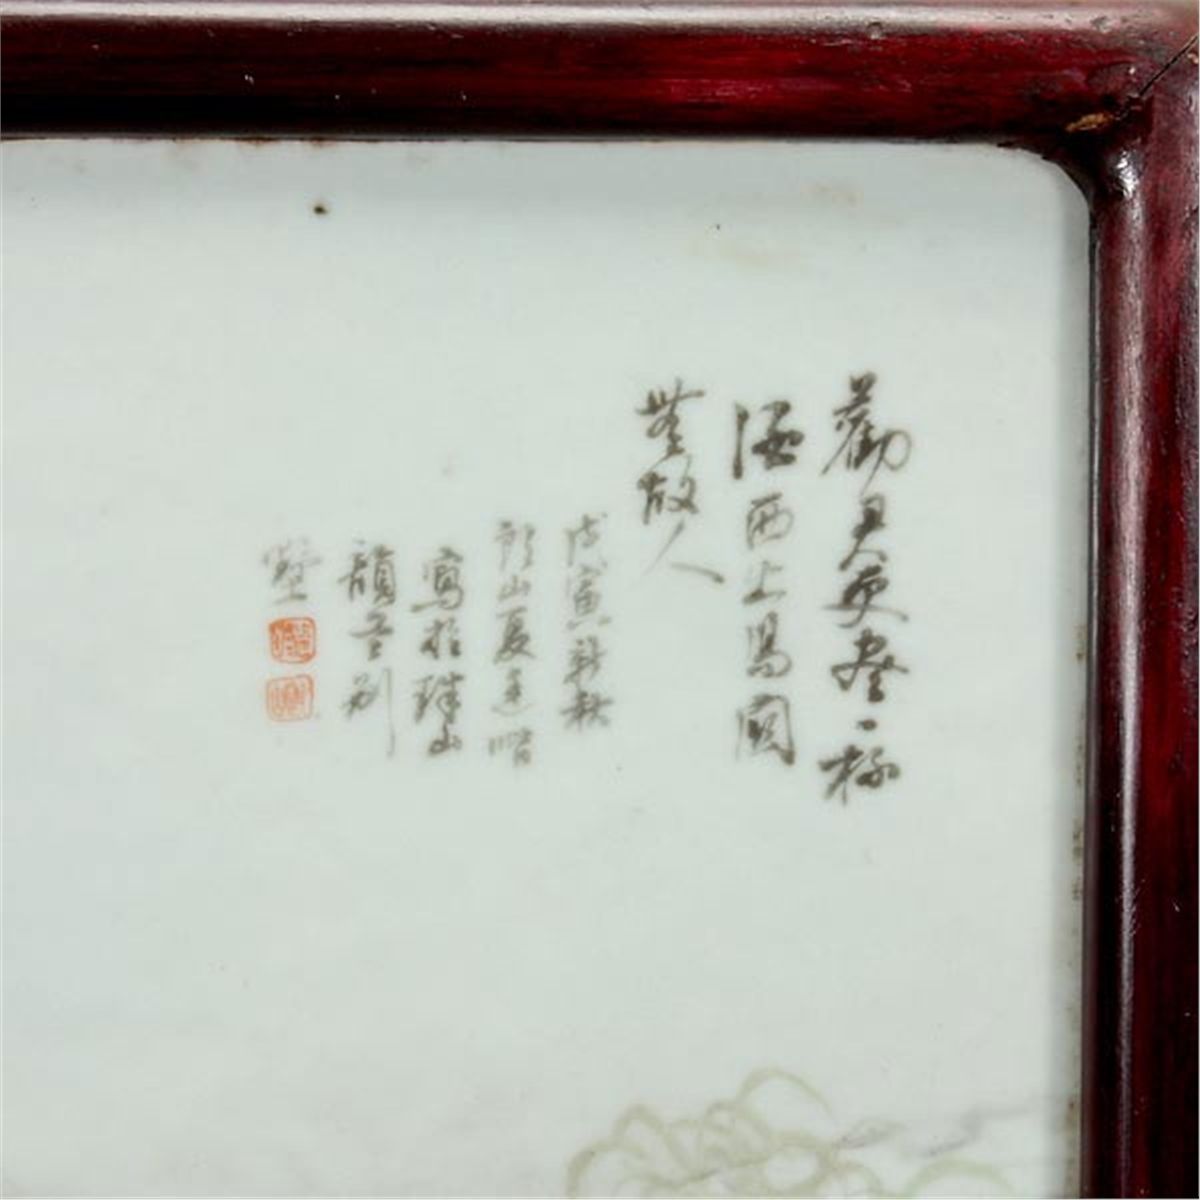 勸君更盡一杯
酒西出陽關
無故人
戊寅新秋
山夏
寫於珠山
韻石別
墅